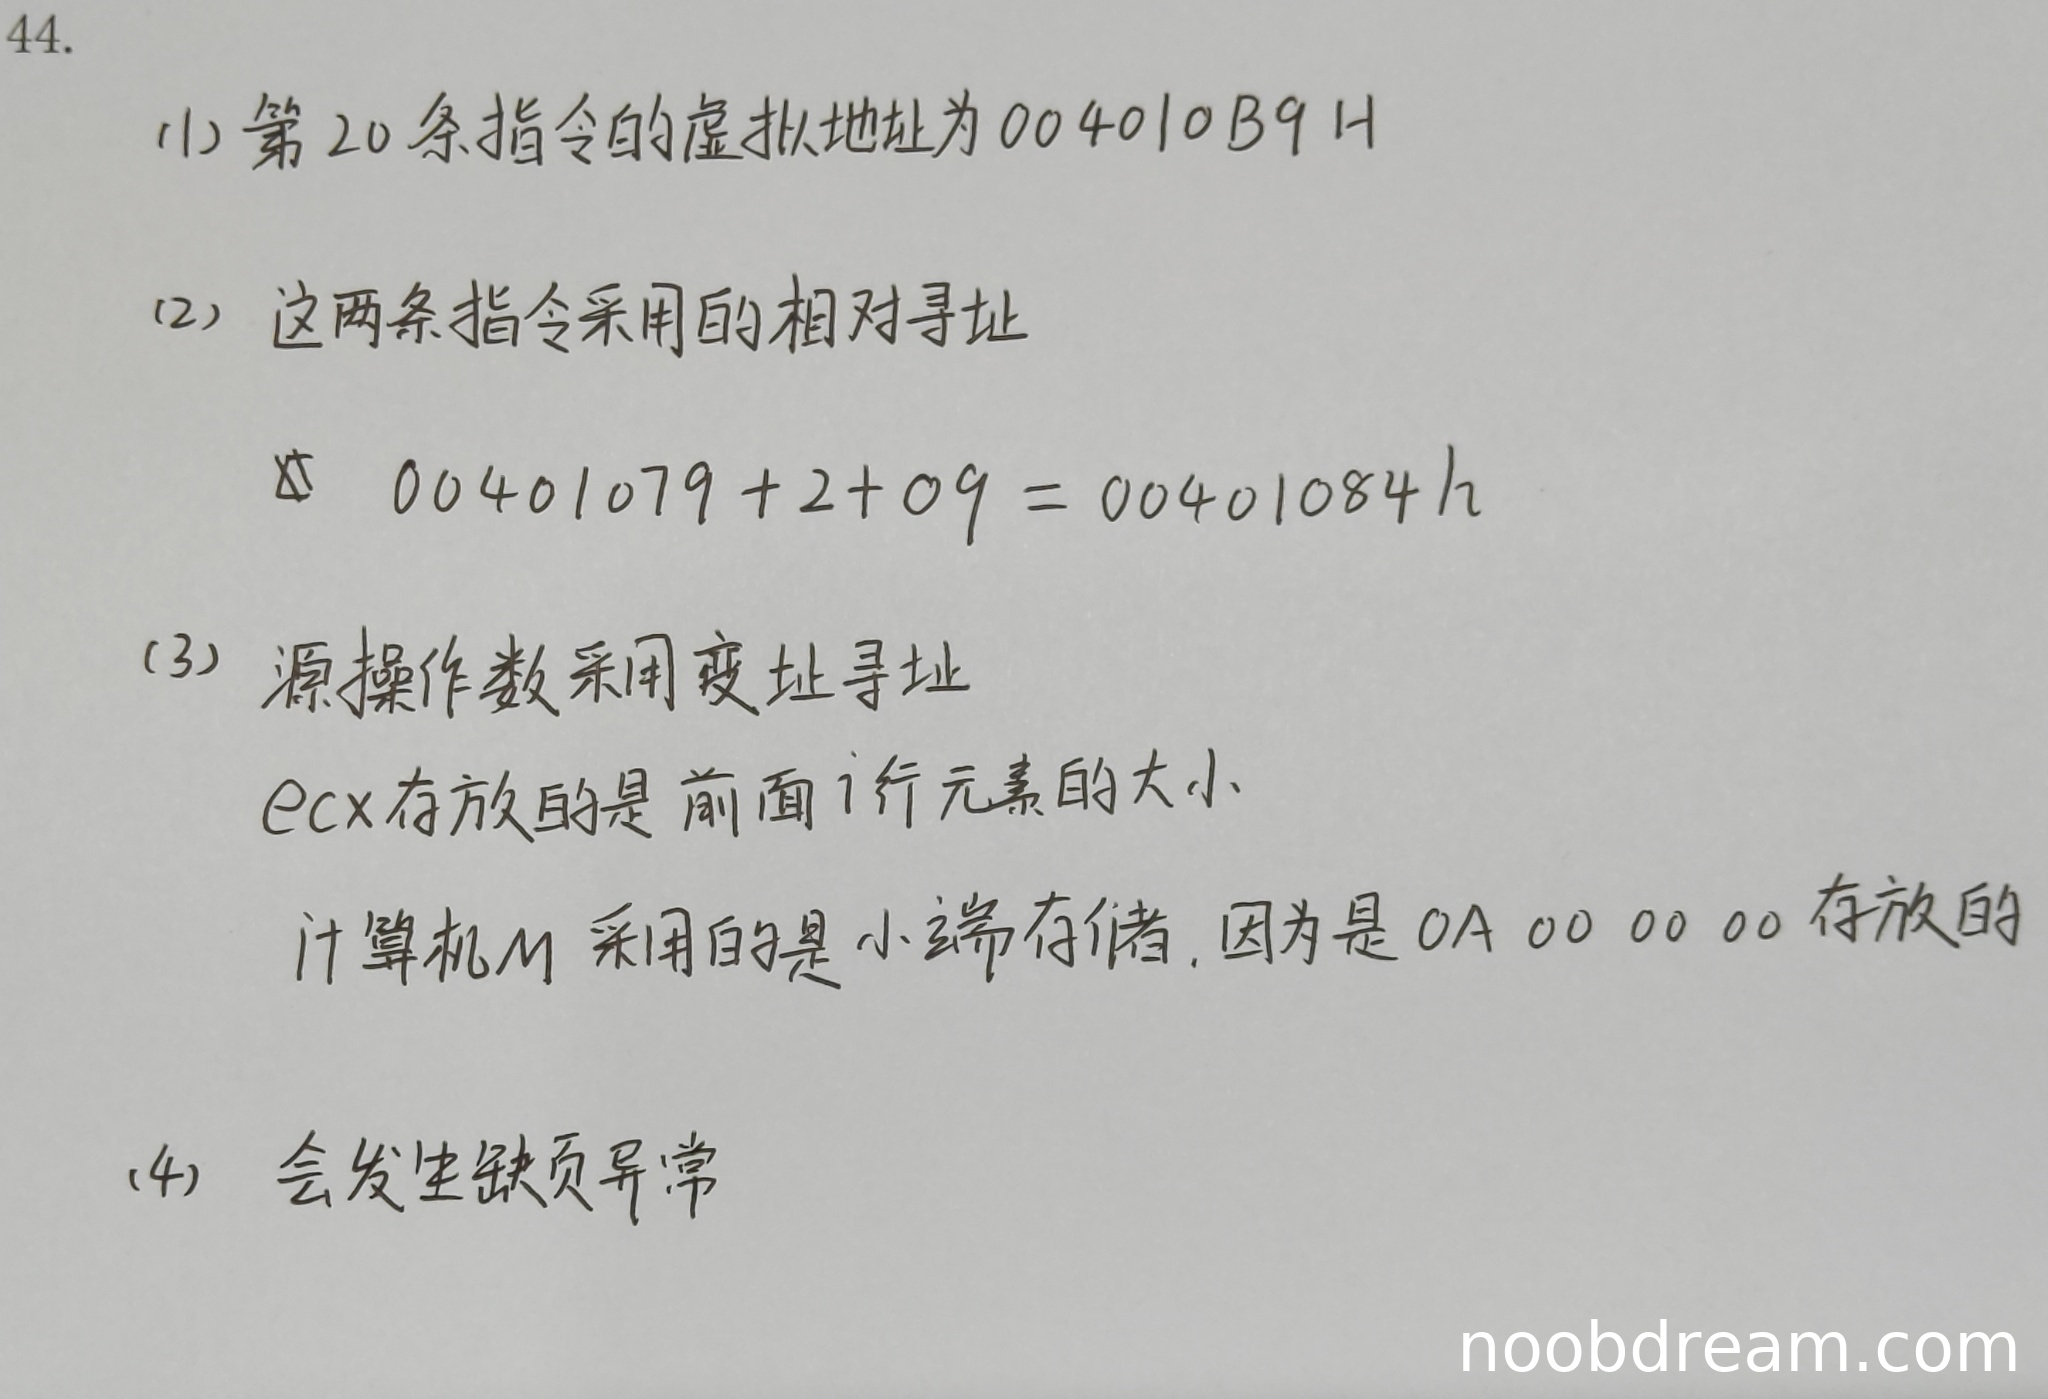 44.
(1) 第20条指令的虚拟地址为004010B9H
(2) 这两条指令采用的相对寻址
00401079+2+09=00401084h
(3) 源操作数采用变址寻址
ecx存放的是前面i行元素的大小
计算机M采用的是小端存储,因为是0A 00 00 00存放的
(4) 会发生缺页异常
noobdream.com